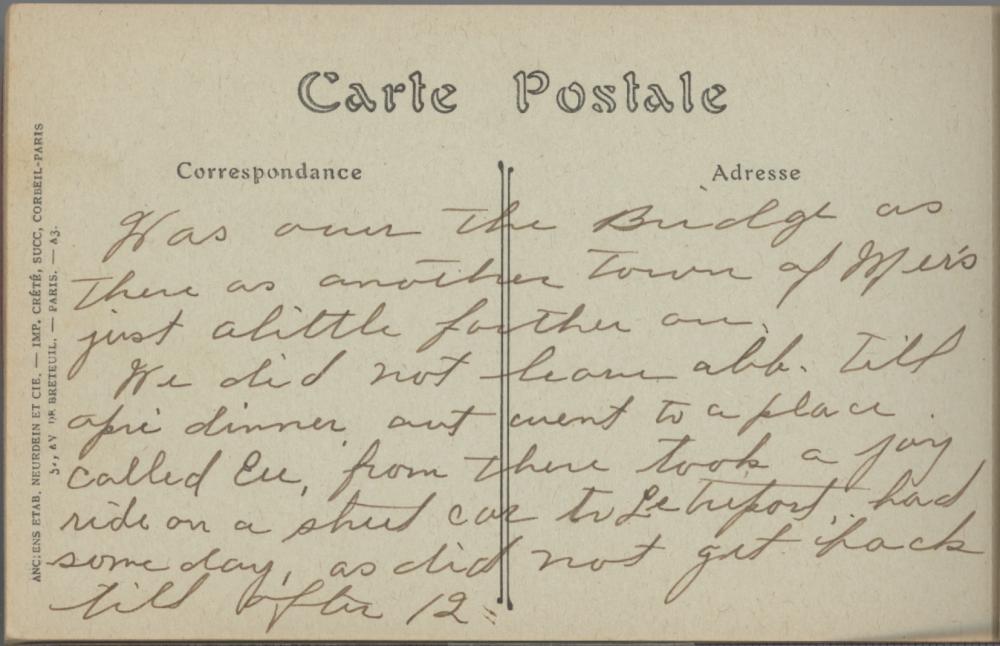 Carte Postale
Correspondance
Adresse
Was over the Bridge as
there as another town of Mers
just alittle farther on.
We did not leave abb. till
apré dinner, and went to a place
called Eu, from there took a joy
ride on a street car to Le treport, had
some day, as did not get back
till after 12
ANCIENS ETAB. NEURDEIN ET CIE. — IMP. CRÉTÉ, SUCC, CORBEIL-PARIS
52, AV. DE BRETEUIL. — PARIS. — A3.